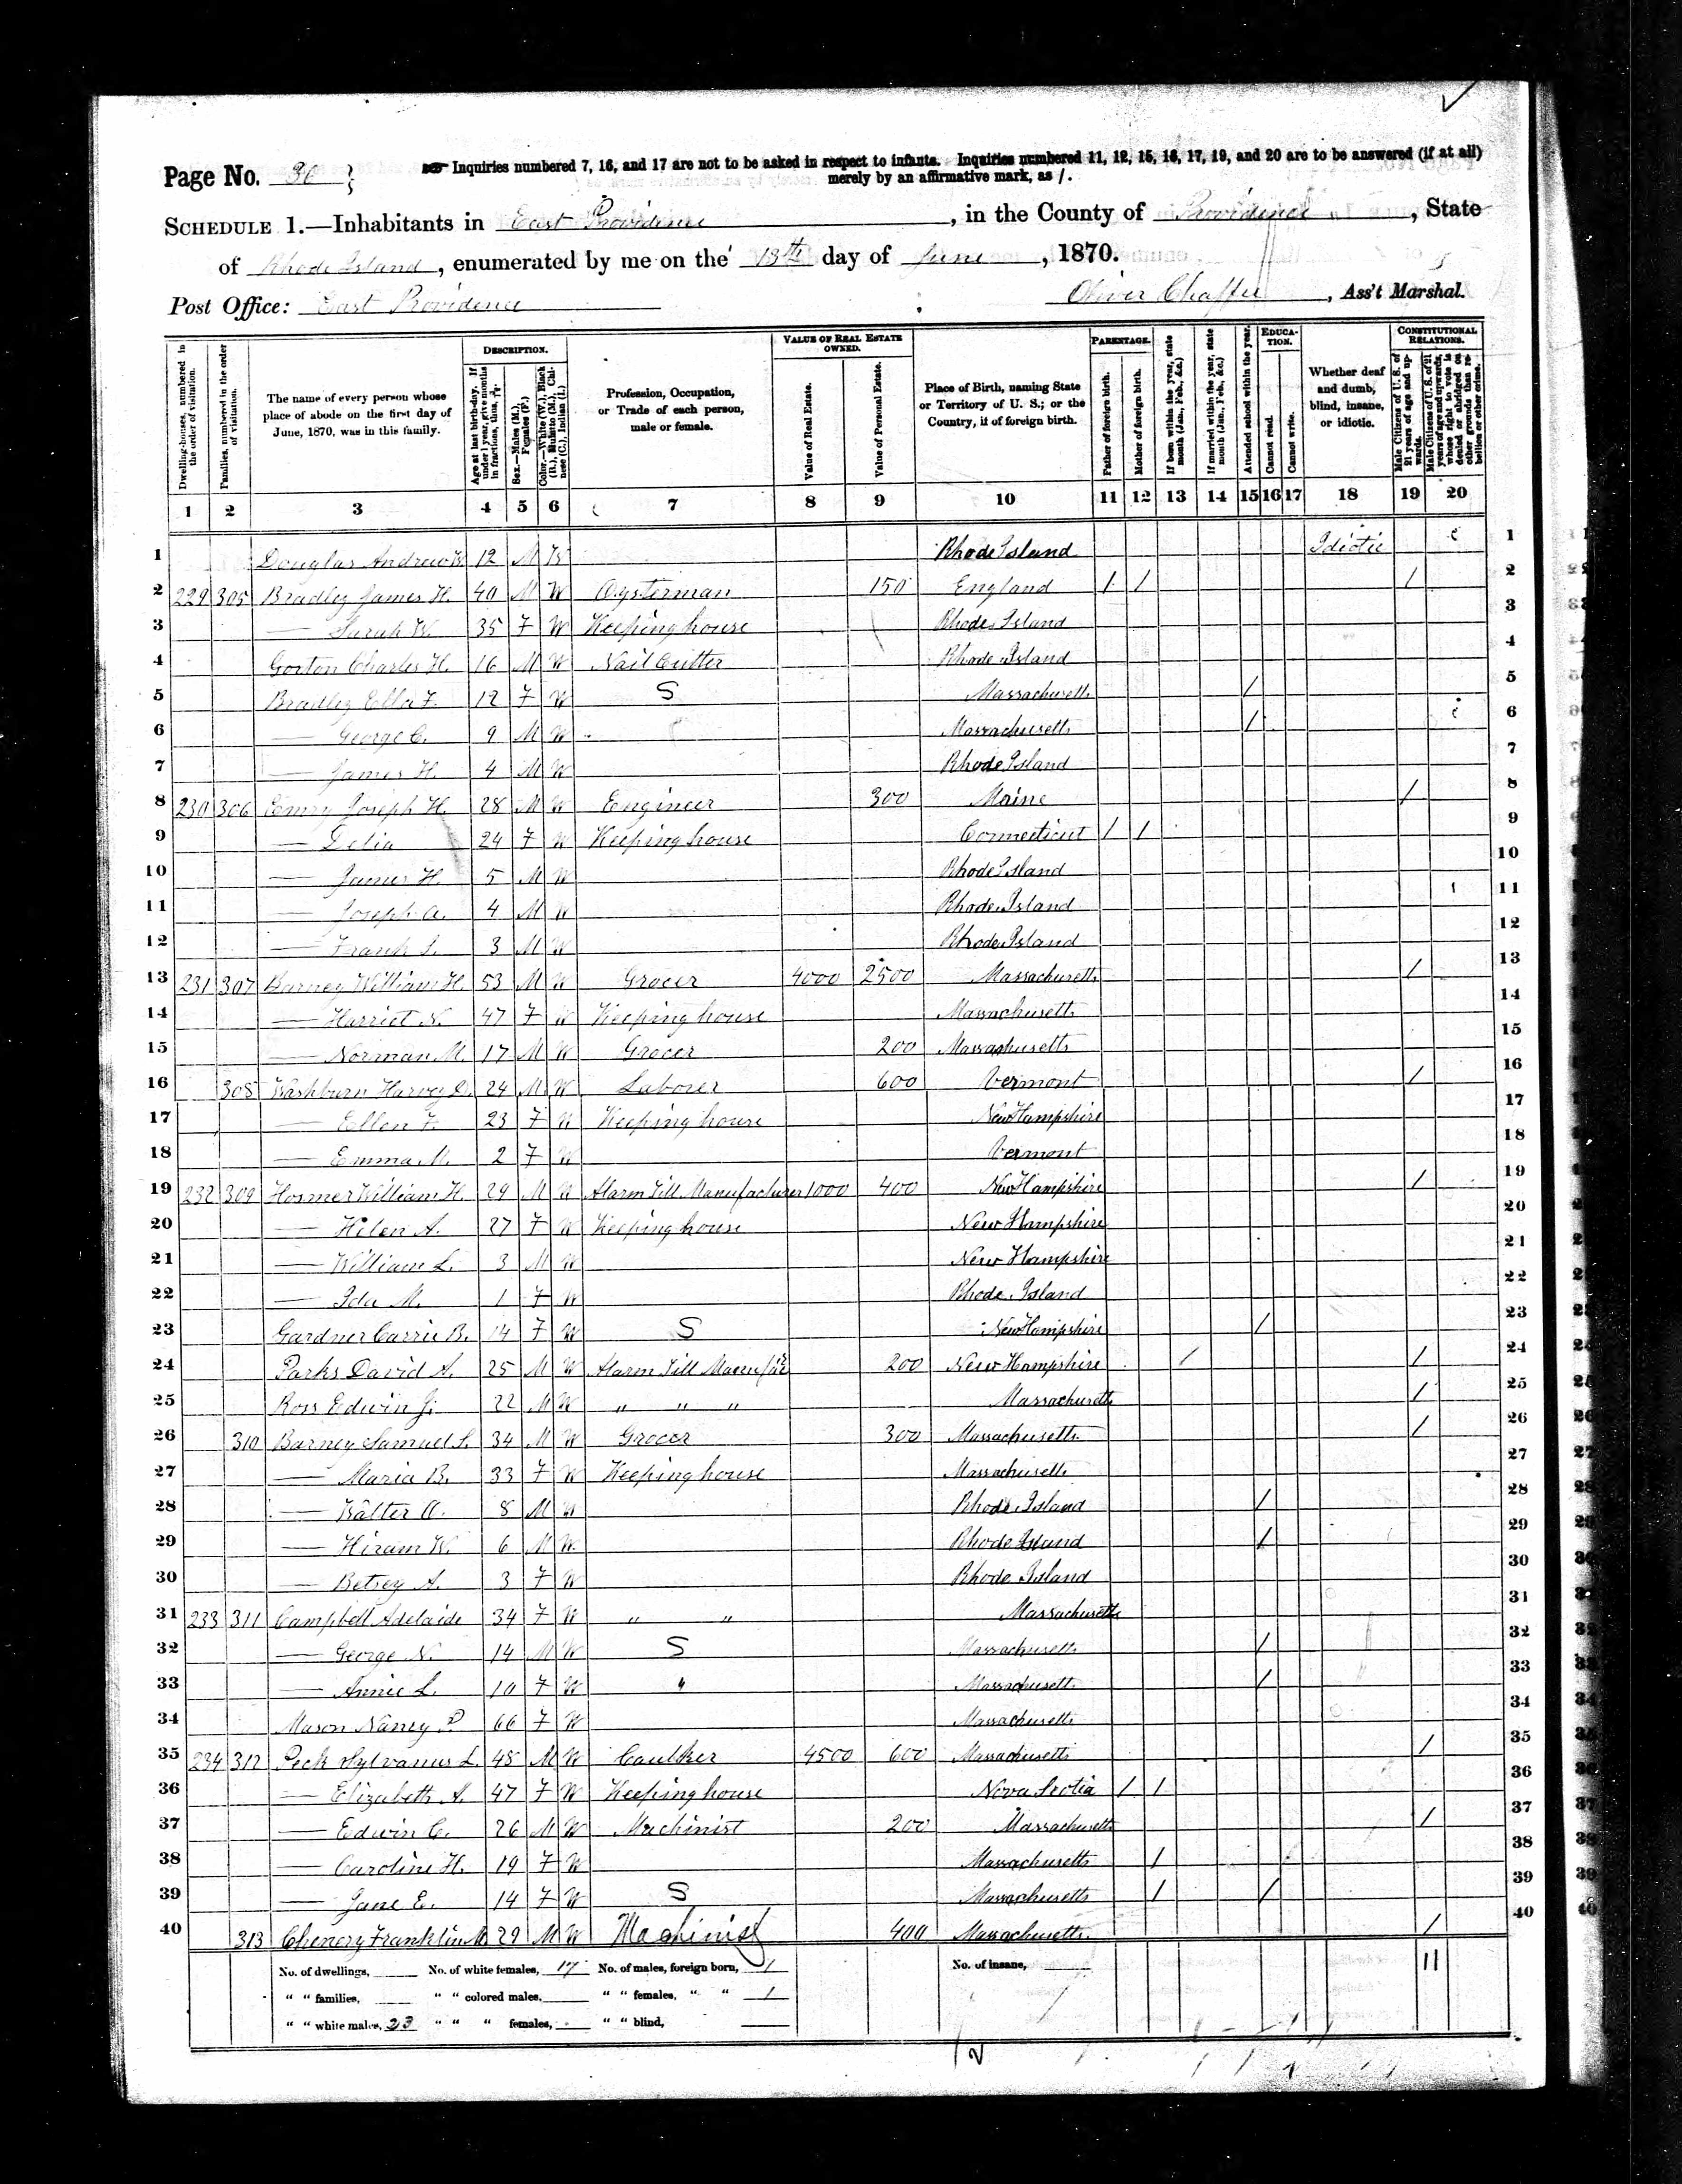 Page No. 30
Inquiries numbered 7, 16, and 17 are not to be asked in respect to infants. Inquiries numbered 11, 12, 15, 16, 17, 19, and 20 are to be answered (if at all)
merely by an affirmative mark, as /.
SCHEDULE 1.—Inhabitants in East Providence, in the County of Providence, State
of Rhode Island, enumerated by me on the 13th day of June, 1870.
Post Office: East Providence
Oliver Chaffee, Ass't Marshal.
DESCRIPTION. VALUE OF REAL ESTATE OWNED. PARENTAGE. EDUCATION. CONSTITUTIONAL RELATIONS.
Dwelling-houses, numbered in the order of visitation.
Families, numbered in the order of visitation.
The name of every person whose place of abode on the first day of June, 1870, was in this family.
Age at last birth-day. If under 1 year, give months in fractions, thus,
Sex.—Males (M.), Females (F.)
Color.—White (W.), Black (B.), Mulatto (M.), Chinese (C.), Indian (I.)
Profession, Occupation, or Trade of each person, male or female.
Value of Real Estate.
Value of Personal Estate.
Place of Birth, naming State or Territory of U. S.; or the Country, if of foreign birth.
Father of foreign birth.
Mother of foreign birth.
If born within the year, state month (Jan., Feb., &c.)
If married within the year, state month (Jan., Feb., &c.)
Attended school within the year.
Cannot read.
Cannot write.
Whether deaf and dumb, blind, insane, or idiotic.
Male Citizens of U. S. of 21 years of age and upwards.
Male Citizens of U. S. of 21 years of age and upwards, whose right to vote is denied or abridged on other grounds than rebellion or other crime.
1 2 3 4 5 6 7 8 9 10 11 12 13 14 15 16 17 18 19 20
1 Douglas Andrew 12 M Rhode Island Idiotic 1
2 229 305 Bradley James H. 40 M W Oysterman 150 England / / / 2
3 — Sarah W. 35 F W Keeping house Rhode Island 3
4 Gorton Charles H. 16 M W Nail Cutter Rhode Island 4
5 Bradley Ella F. 12 F W S Massachusetts / 5
6 — George C. 9 M W Massachusetts / 6
7 — James H. 4 M W Rhode Island 7
8 230 306 Joseph H. 28 M W Engineer 300 Maine / 8
9 — Delia 24 F W Keeping house Connecticut / / 9
10 — James H. 5 M W Rhode Island 10
11 — Joseph A. 4 M W Rhode Island 11
12 — Frank L. 3 M W Rhode Island 12
13 231 307 Barney William H. 53 M W Grocer 4000 2500 Massachusetts / 13
14 — Harriet N. 47 F W Keeping house Massachusetts 14
15 — Norman M. 17 M W Grocer 200 Massachusetts 15
16 308 Washburn Harvey D. 24 M W Laborer 600 Vermont / 16
17 — Ellen F. 23 F W Keeping house New Hampshire 17
18 — Emma M. 2 F W Vermont 18
19 232 309 Hosmer William H. 29 M W Alarm Till Manufacturer 1000 400 New Hampshire / 19
20 — Helen A. 27 F W Keeping house New Hampshire 20
21 — William L. 3 M W New Hampshire 21
22 — Ida M. 1 F W Rhode Island 22
23 Gardner Carrie B. 14 F W S New Hampshire / 23
24 Parks David A. 25 M W Alarm Till Manufac 200 New Hampshire / / 24
25 Ross Edwin J. 22 M W " " " Massachusetts / 25
26 310 Barney Samuel S. 34 M W Grocer 300 Massachusetts / 26
27 — Maria B. 33 F W Keeping house Massachusetts 27
28 — Walter O. 8 M W Rhode Island / 28
29 — Hiram W. 6 M W Rhode Island / 29
30 — Betsey A. 3 F W Rhode Island 30
31 233 311 Campbell Adelaide 34 F W " " Massachusetts 31
32 — George N. 14 M W S Massachusetts / 32
33 — Annie L. 10 F W " Massachusetts / 33
34 Mason Nancy P 66 F W Massachusetts 34
35 234 312 Peck Sylvanus L. 48 M W Caulker 4500 600 Massachusetts / 35
36 — Elizabeth A. 47 F W Keeping house Nova Scotia / / 36
37 — Edwin C. 26 M W Machinist 200 Massachusetts / 37
38 — Caroline H. 19 F W Massachusetts / 38
39 — Jane E. 14 F W S Massachusetts / / 39
40 313 Chenery Franklin M. 29 M W Machinist 400 Massachusetts / 40
No. of dwellings, No. of white females, 17 No. of males, foreign born, 1 No. of insane, 11
" " families, " " colored males, " " females, " " 1
" " white males, 23 " " " females, " " blind,
12